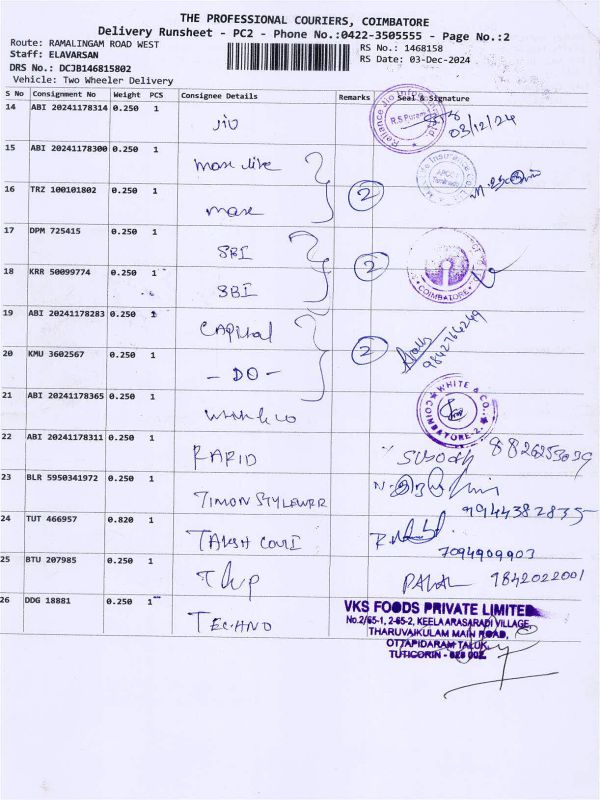 THE PROFESSIONAL COURIERS, COIMBATORE
Delivery Runsheet - PC2 - Phone No.:0422-3505555 - Page No.:2
Route: RAMALINGAM ROAD WEST
RS No.: 1468158
Staff: ELAVARSAN
RS Date: 03-Dec-2024
DRS No.: DCJB146815802
Vehicle: Two Wheeler Delivery
S No Consignment No Weight PCS Consignee Details Remarks Seal & Signature
14 ABI 20241178314 0.250 1 JIO R.S Puram 03/12/24
15 ABI 20241178300 0.250 1 max live
16 TRZ 100101802 0.250 1 max 2
17 DPM 725415 0.250 1 SBI
18 KRR 50099774 0.250 1 SBI 2 COIMBATORE
19 ABI 20241178283 0.250 1 CAPItal
20 KMU 3602567 0.250 1 - DO - 2 9842764249
21 ABI 20241178365 0.250 1 WHITE & CO. COIMBATORE-2.
22 ABI 20241178311 0.250 1 RAPID
23 BLR 5950341972 0.250 1 9944382835
24 TUT 466957 0.820 1 7094909903
25 BTU 207985 0.250 1 9842022001
26 DDG 18881 0.250 1 TECHNO
VKS FOODS PRIVATE LIMITED
No.2/65-1, 2-65-2, KEELA ARASARADI VILLAGE,
THARUVAIKULAM MAIN ROAD,
OTTAPIDARAM TALUK,
TUTICORIN - 628 002.